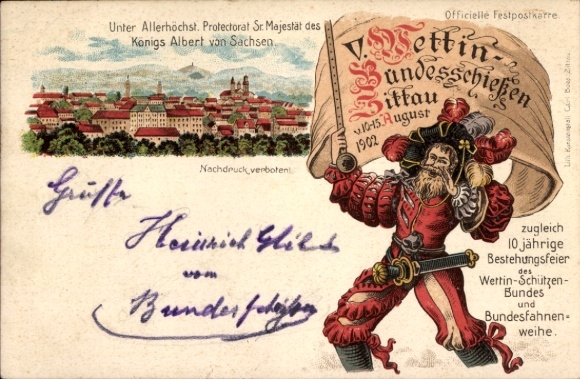 Officielle Festpostkarte.
Unter Allerhöchst. Protectorat Sr. Majestät des
Königs Albert von Sachsen.
V. Wettin-
Bundesschießen
Zittau
v. 10-15. August
1902
Nachdruck verboten!
zugleich
10 jährige
Bestehungsfeier
des
Wettin-Schützen-
Bundes
und
Bundesfahnen-
weihe.
Grüsse
Heinrich
vom
Bundesschießen